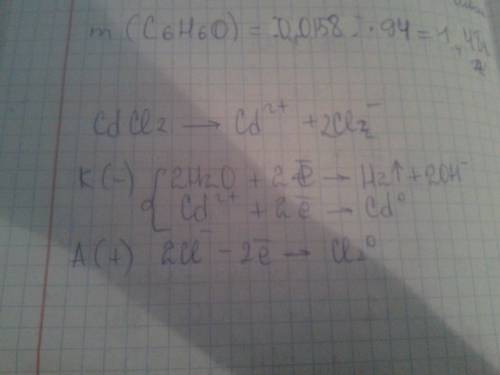 m (C6H6O) = 0,0158 · 94 = 1,48
CdCl2 → Cd²⁺ + 2Cl⁻
K(-) { 2H2O + 2ē → H2↑ + 2OH⁻
Cd²⁺ + 2ē → Cd⁰
A(+) 2Cl⁻ - 2ē → Cl2⁰